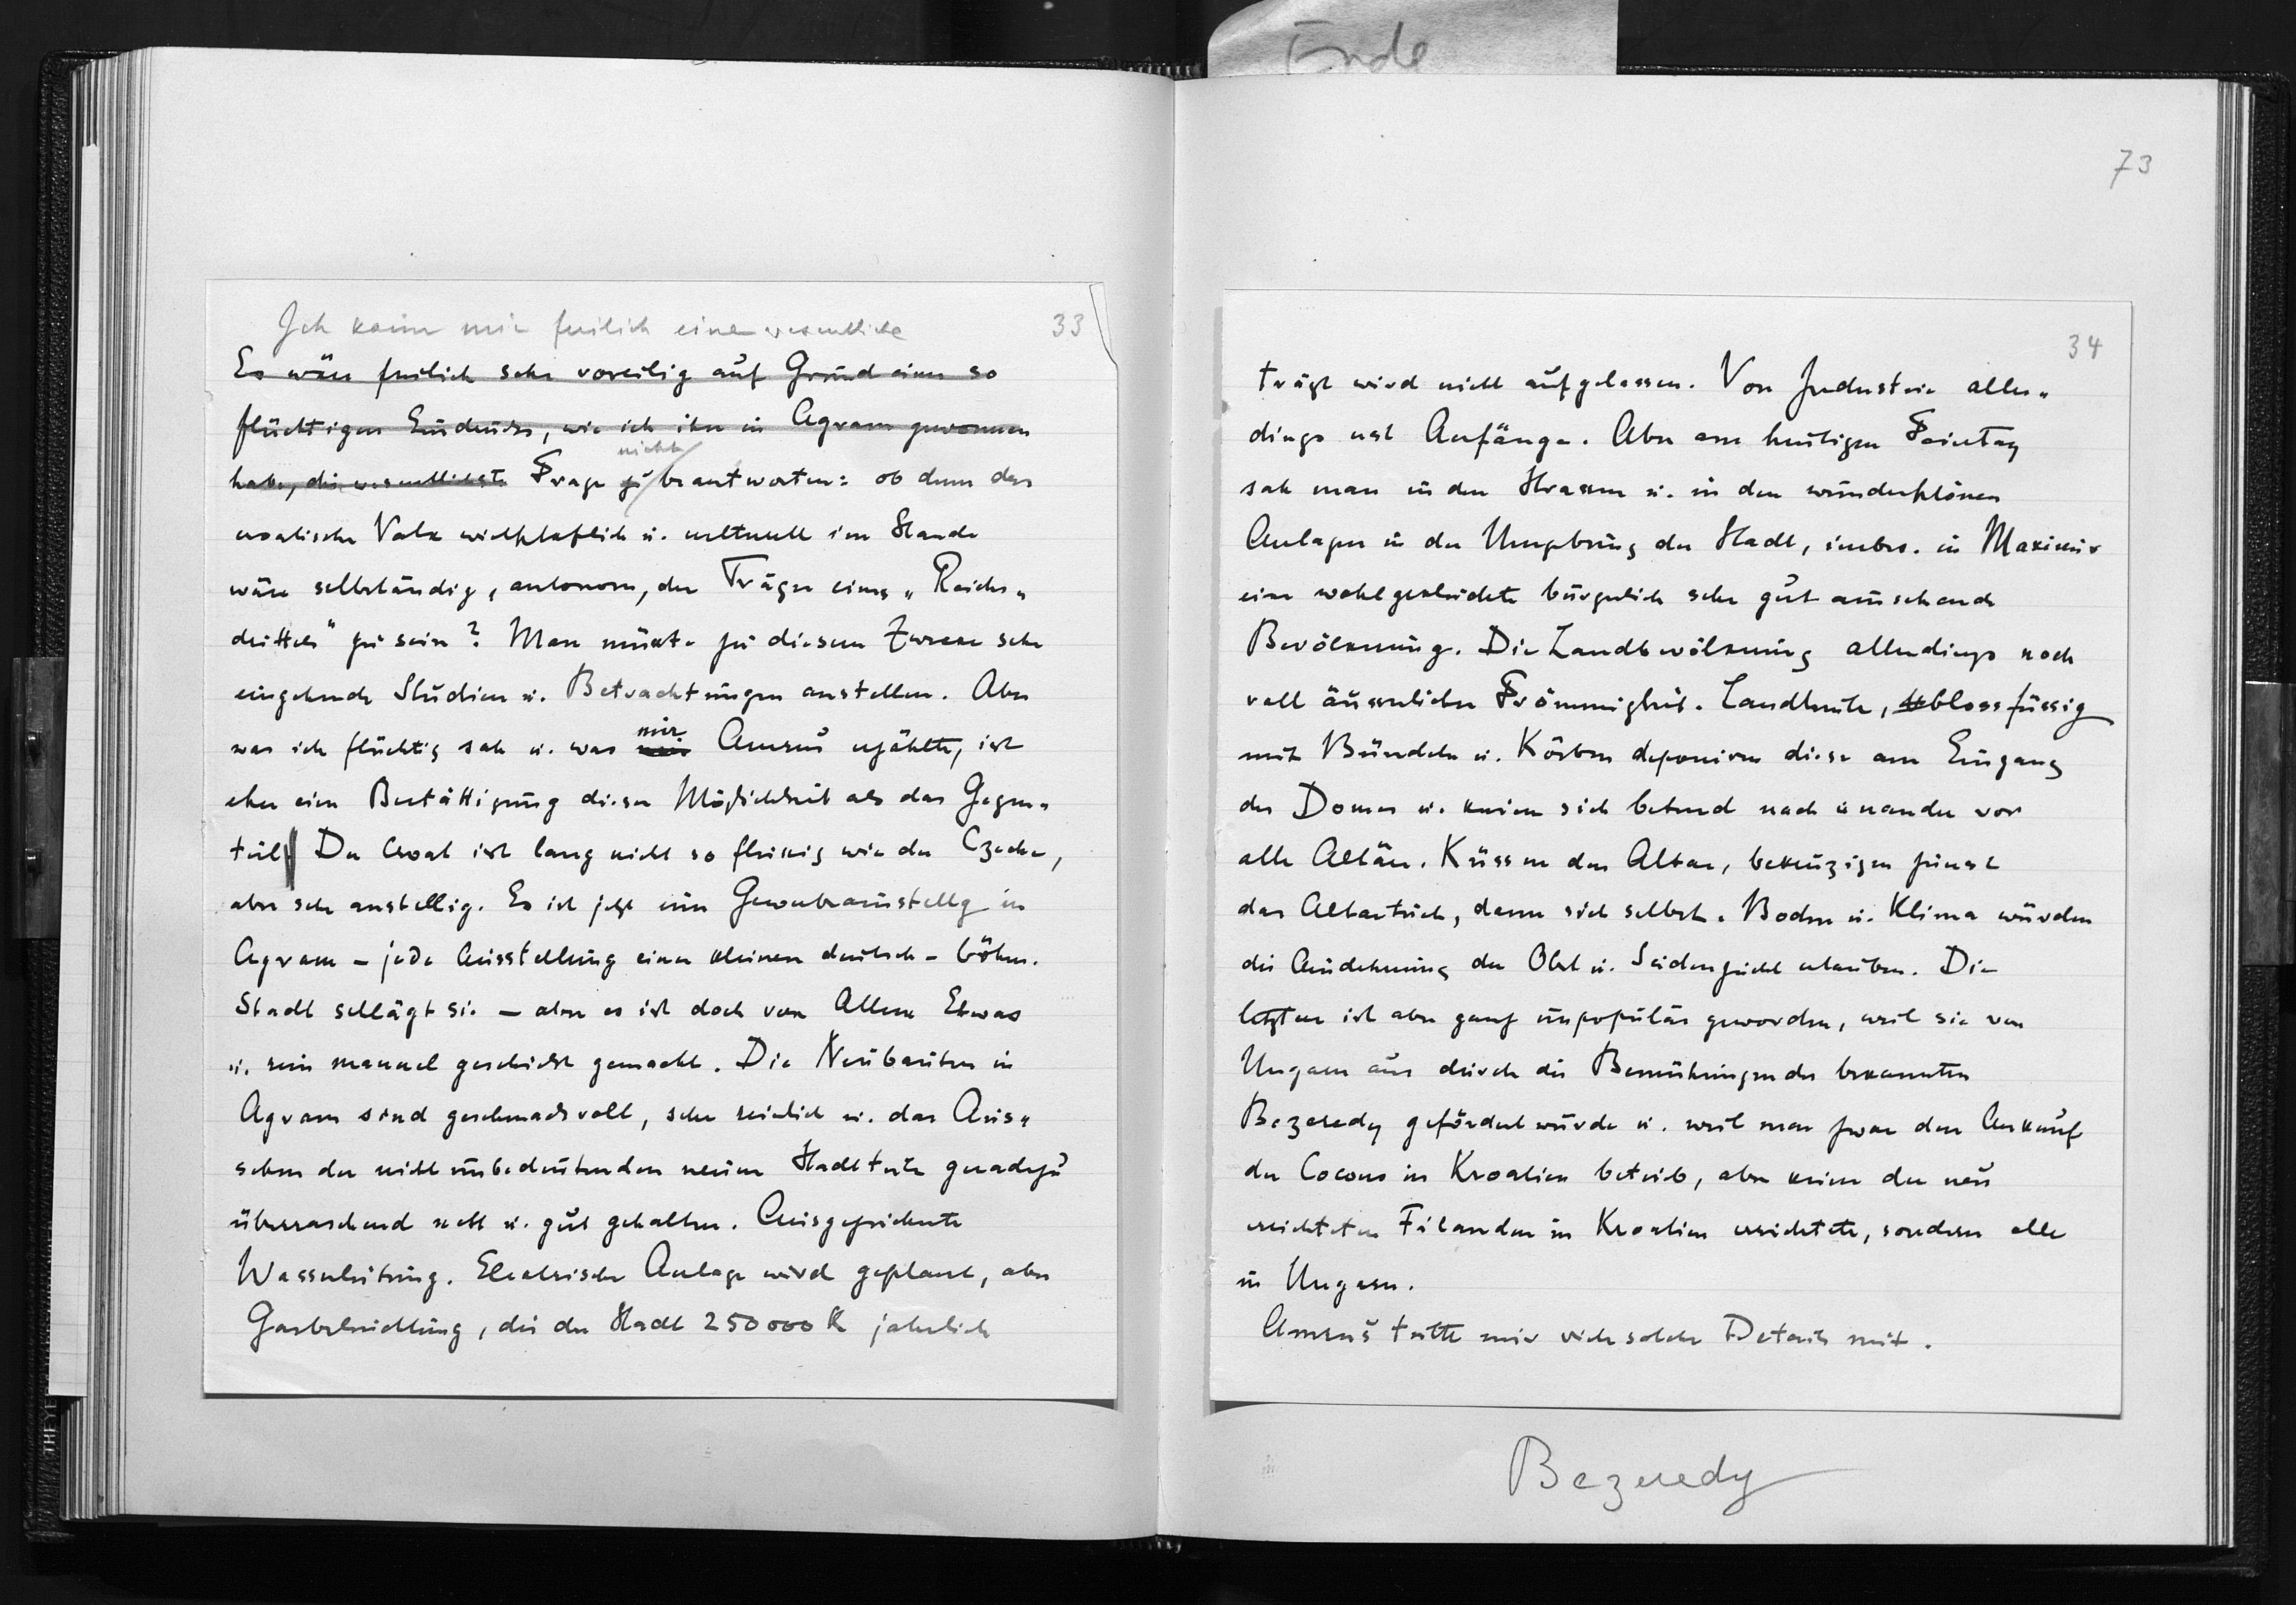 Ende
73
33
Ich kann mir freilich eine wesentliche
Es wäre freilich sehr voreilig auf Grund eines so
flüchtigen Eindrucks, wie ich ihn in Agram gewonnen
habe, die wesentlichste Frage zu nicht beantworten: ob denn das
croatische Volk wirthschaftlich u. culturell im Stande
wäre selbständig, autonom, der Träger eines „Reichs„
drittels" zu sein? Man müsste zu diesem Zwecke sehr
eingehende Studien u. Betrachtungen anstellen. Aber
was ich flüchtig sah u. was mir Amrus erzählte, ist
eher eine Bestättigung dieser Möglichkeit als das Gegen„
teil. Der Croat ist lang nicht so fleissig wie der Czeche,
aber sehr anstellig. Es ist jetzt eine Gewerbeausstellg in
Agram – jede Ausstellung einer kleinen deutsch-böhm.
Stadt schlägt sie – aber es ist doch von Allem Etwas
u. rein manuel geschickt gemacht. Die Neubauten in
Agram sind geschmackvoll, sehr reinlich u. das Aus„
sehen der nicht unbedeutenden neuen Stadtteile geradezu
überraschend nett u. gut gehalten. Ausgezeichnete
Wasserleitung. Electrische Anlage wird geplant, aber
Gasbeleuchtung, die der Stadt 250000 K jährlich
34
trägt wird nicht aufgelassen. Von Industrie aller„
dings erst Anfänge. Aber am heutigen Feiertag
sah man in den Strassen u. in den wunderschönen
Anlagen in der Umgebung der Stadt, insbes. in Maximir
eine wohlgekleidete bürgerlich sehr gut aussehende
Bevölkerung. Die Landbevölkerung allerdings noch
voll äusserlicher Frömmigkeit. Landleute, blossfüssig
mit Bündeln u. Körben deponiren diese am Eingang
des Domes u. knien sich betend nach einander vor
alle Altäre. Küssen den Altar, bekreuzigen zuerst
das Altartuch, dann sich selbst. Boden u. Klima würden
die Ausdehnung der Obst u. Seidenzucht erlauben. Die
letztere ist aber ganz unpopulär geworden, weil sie von
Ungarn aus durch die Bemühungen des bekannten
Bezeredy gefördert wurde u. weil man zwar den Ankauf
der Cocons in Kroatien betrieb, aber keine der neu
errichteten Filanden in Kroatien errichtete, sondern alle
in Ungarn.
Amrus teilte mir viele solche Details mit.
Bezeredy